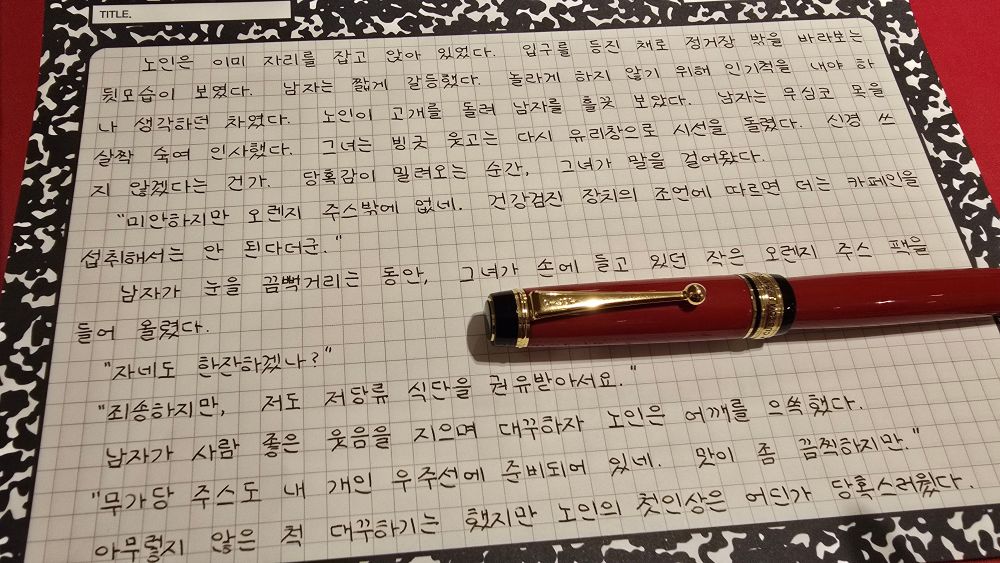 TITLE.
노인은 이미 자리를 잡고 앉아 있었다. 입구를 등진 채로 정거장 밖을 바라보는
뒷모습이 보였다. 남자는 짧게 갈등했다. 놀라게 하지 않기 위해 인기척을 내야 하
나 생각하던 차였다. 노인이 고개를 돌려 남자를 흘긋 보았다. 남자는 무심코 목을
살짝 숙여 인사했다. 그녀는 빙긋 웃고는 다시 유리창으로 시선을 돌렸다. 신경 쓰
지 않겠다는 건가. 당혹감이 밀려오는 순간, 그녀가 말을 걸어왔다.
"미안하지만 오렌지 주스밖에 없네. 건강검진 장치의 조언에 따르면 더는 카페인을
섭취해서는 안 된다더군."
남자가 눈을 끔뻑거리는 동안, 그녀가 손에 들고 있던 작은 오렌지 주스 팩을
들어 올렸다.
"자네도 한잔하겠나?"
"죄송하지만, 저도 저당류 식단을 권유받아서요."
남자가 사람 좋은 웃음을 지으며 대꾸하자 노인은 어깨를 으쓱했다.
"무가당 주스도 내 개인 우주선에 준비되어 있네. 맛이 좀 끔찍하지만."
아무렇지 않은 척 대꾸하기는 했지만 노인의 첫인상은 어딘가 당혹스러웠다.